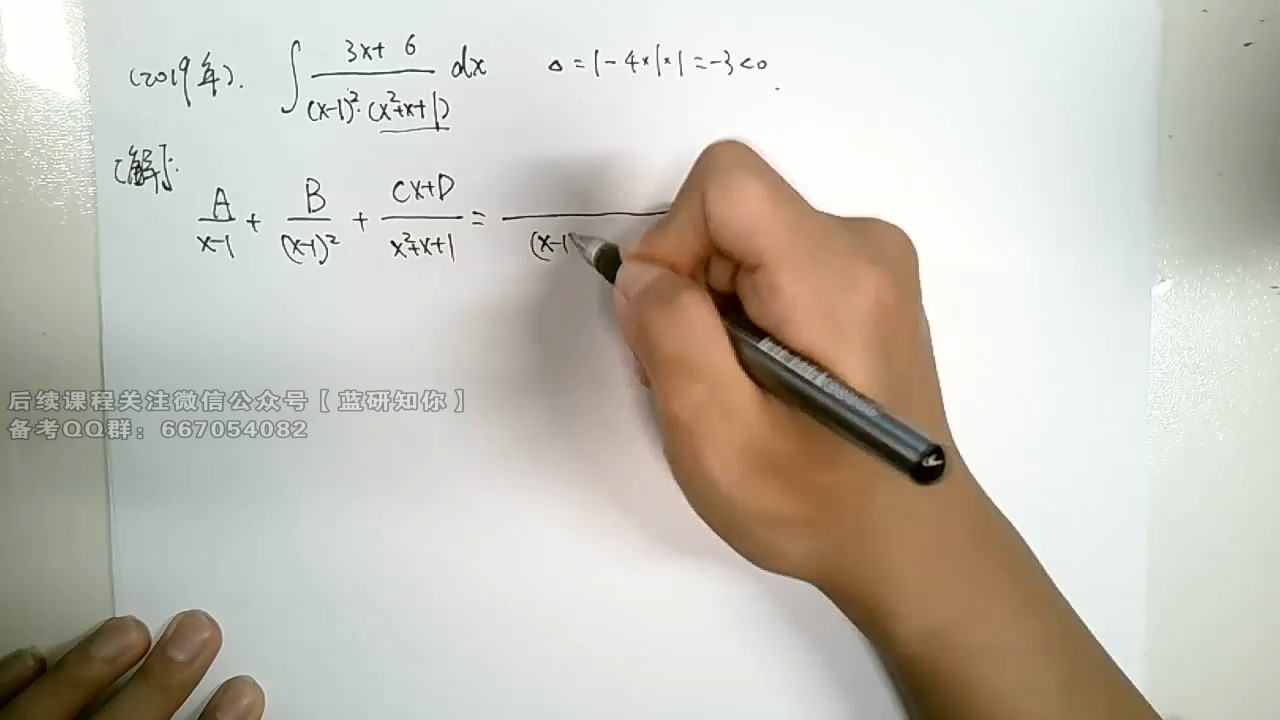 (2019年). ∫ 3x+6 / (x-1)²·(x²+x+1) dx   Δ=1-4×1×1=-3<0
[解]:
A/(x-1) + B/(x-1)² + (Cx+D)/(x²+x+1) = /(x-1
后续课程关注微信公众号【蓝研知你】
备考QQ群：667054082